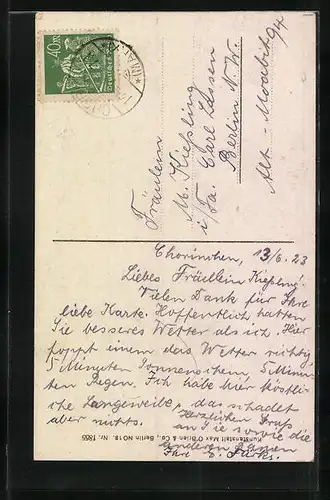 Fräulein
M. Kießling
i/Fa. Carl Lassen
Berlin N.W.
Alt-Moabit 94
Chorinchen, 13/6.23
Liebes Fräulein Kießling!
Vielen Dank für Ihre
liebe Karte. Hoffentlich hatten
Sie besseres Wetter als ich. Hier
foppt einem das Wetter richtig,
5 Minuten Sonnenschein, 5 Minu-
ten Regen. Ich habe hier köstli-
che Langeweile, das schadet
aber nichts. Herzlichen Gruß
an Sie sowie die
anderen Damen
Ihr
Kunstanstalt Max O'Brien & Co., Berlin NO 18. Nr.
40 M
Deutsches